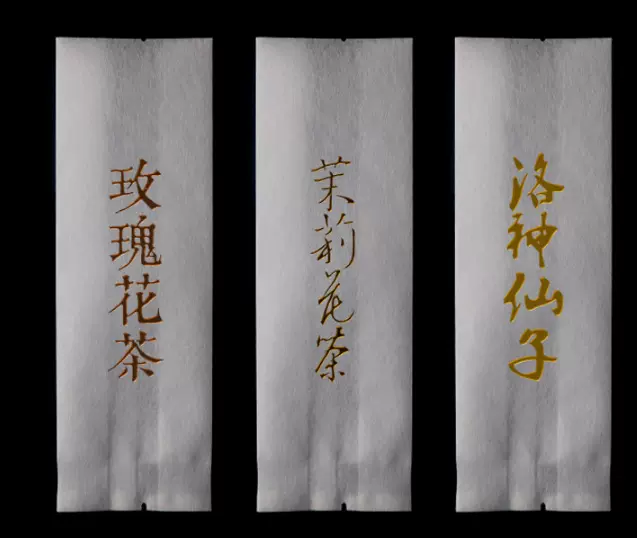 玫瑰花茶
茉莉花茶
洛神仙子